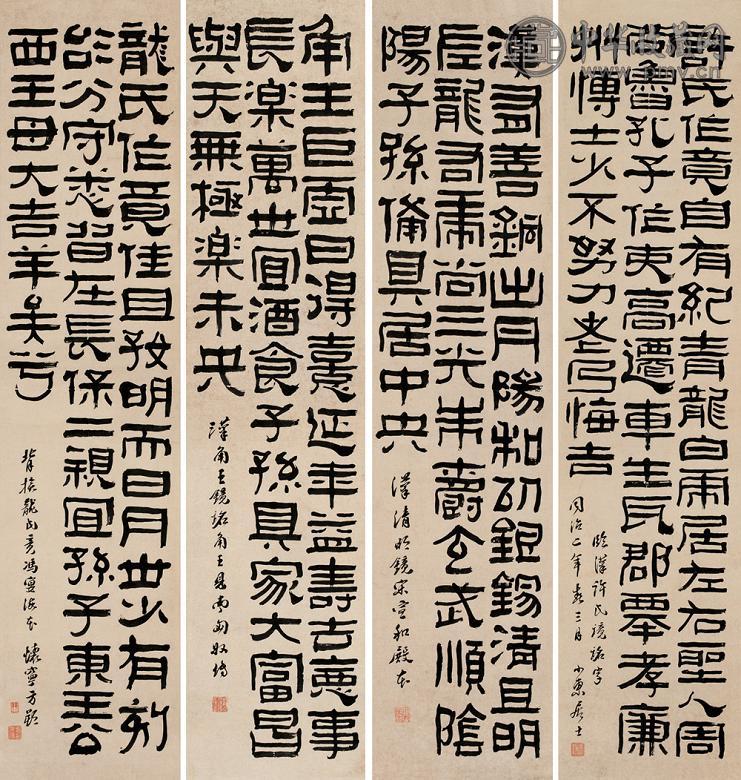 中华收藏网
www.pmv.cn
許氏作竟自有紀青龍白虎居左右聖人周
公魯孔子作吏高遷車生耳郡舉孝廉
州博士少不努力老乃悔吉
臨漢許氏鏡銘字
同治二年春三月 小東居士
漢有善銅出丹陽和以銀錫清且明
左龍右虎尚三光朱爵玄武順陰
陽子孫備具居中央
漢清明鏡宋宣和殿本
角王巨虛日得憙延年益壽去憂事
長樂萬世宜酒食子孫具家大富昌
與天無極樂未央
漢角王鏡銘角王見南匈奴傳
龍氏作竟佳且好明而日月世少有刻
治分守悉皆在長保二親宜孫子東王公
西王母大吉羊矣兮
龍氏竟馮晏海本 懷寧方朔